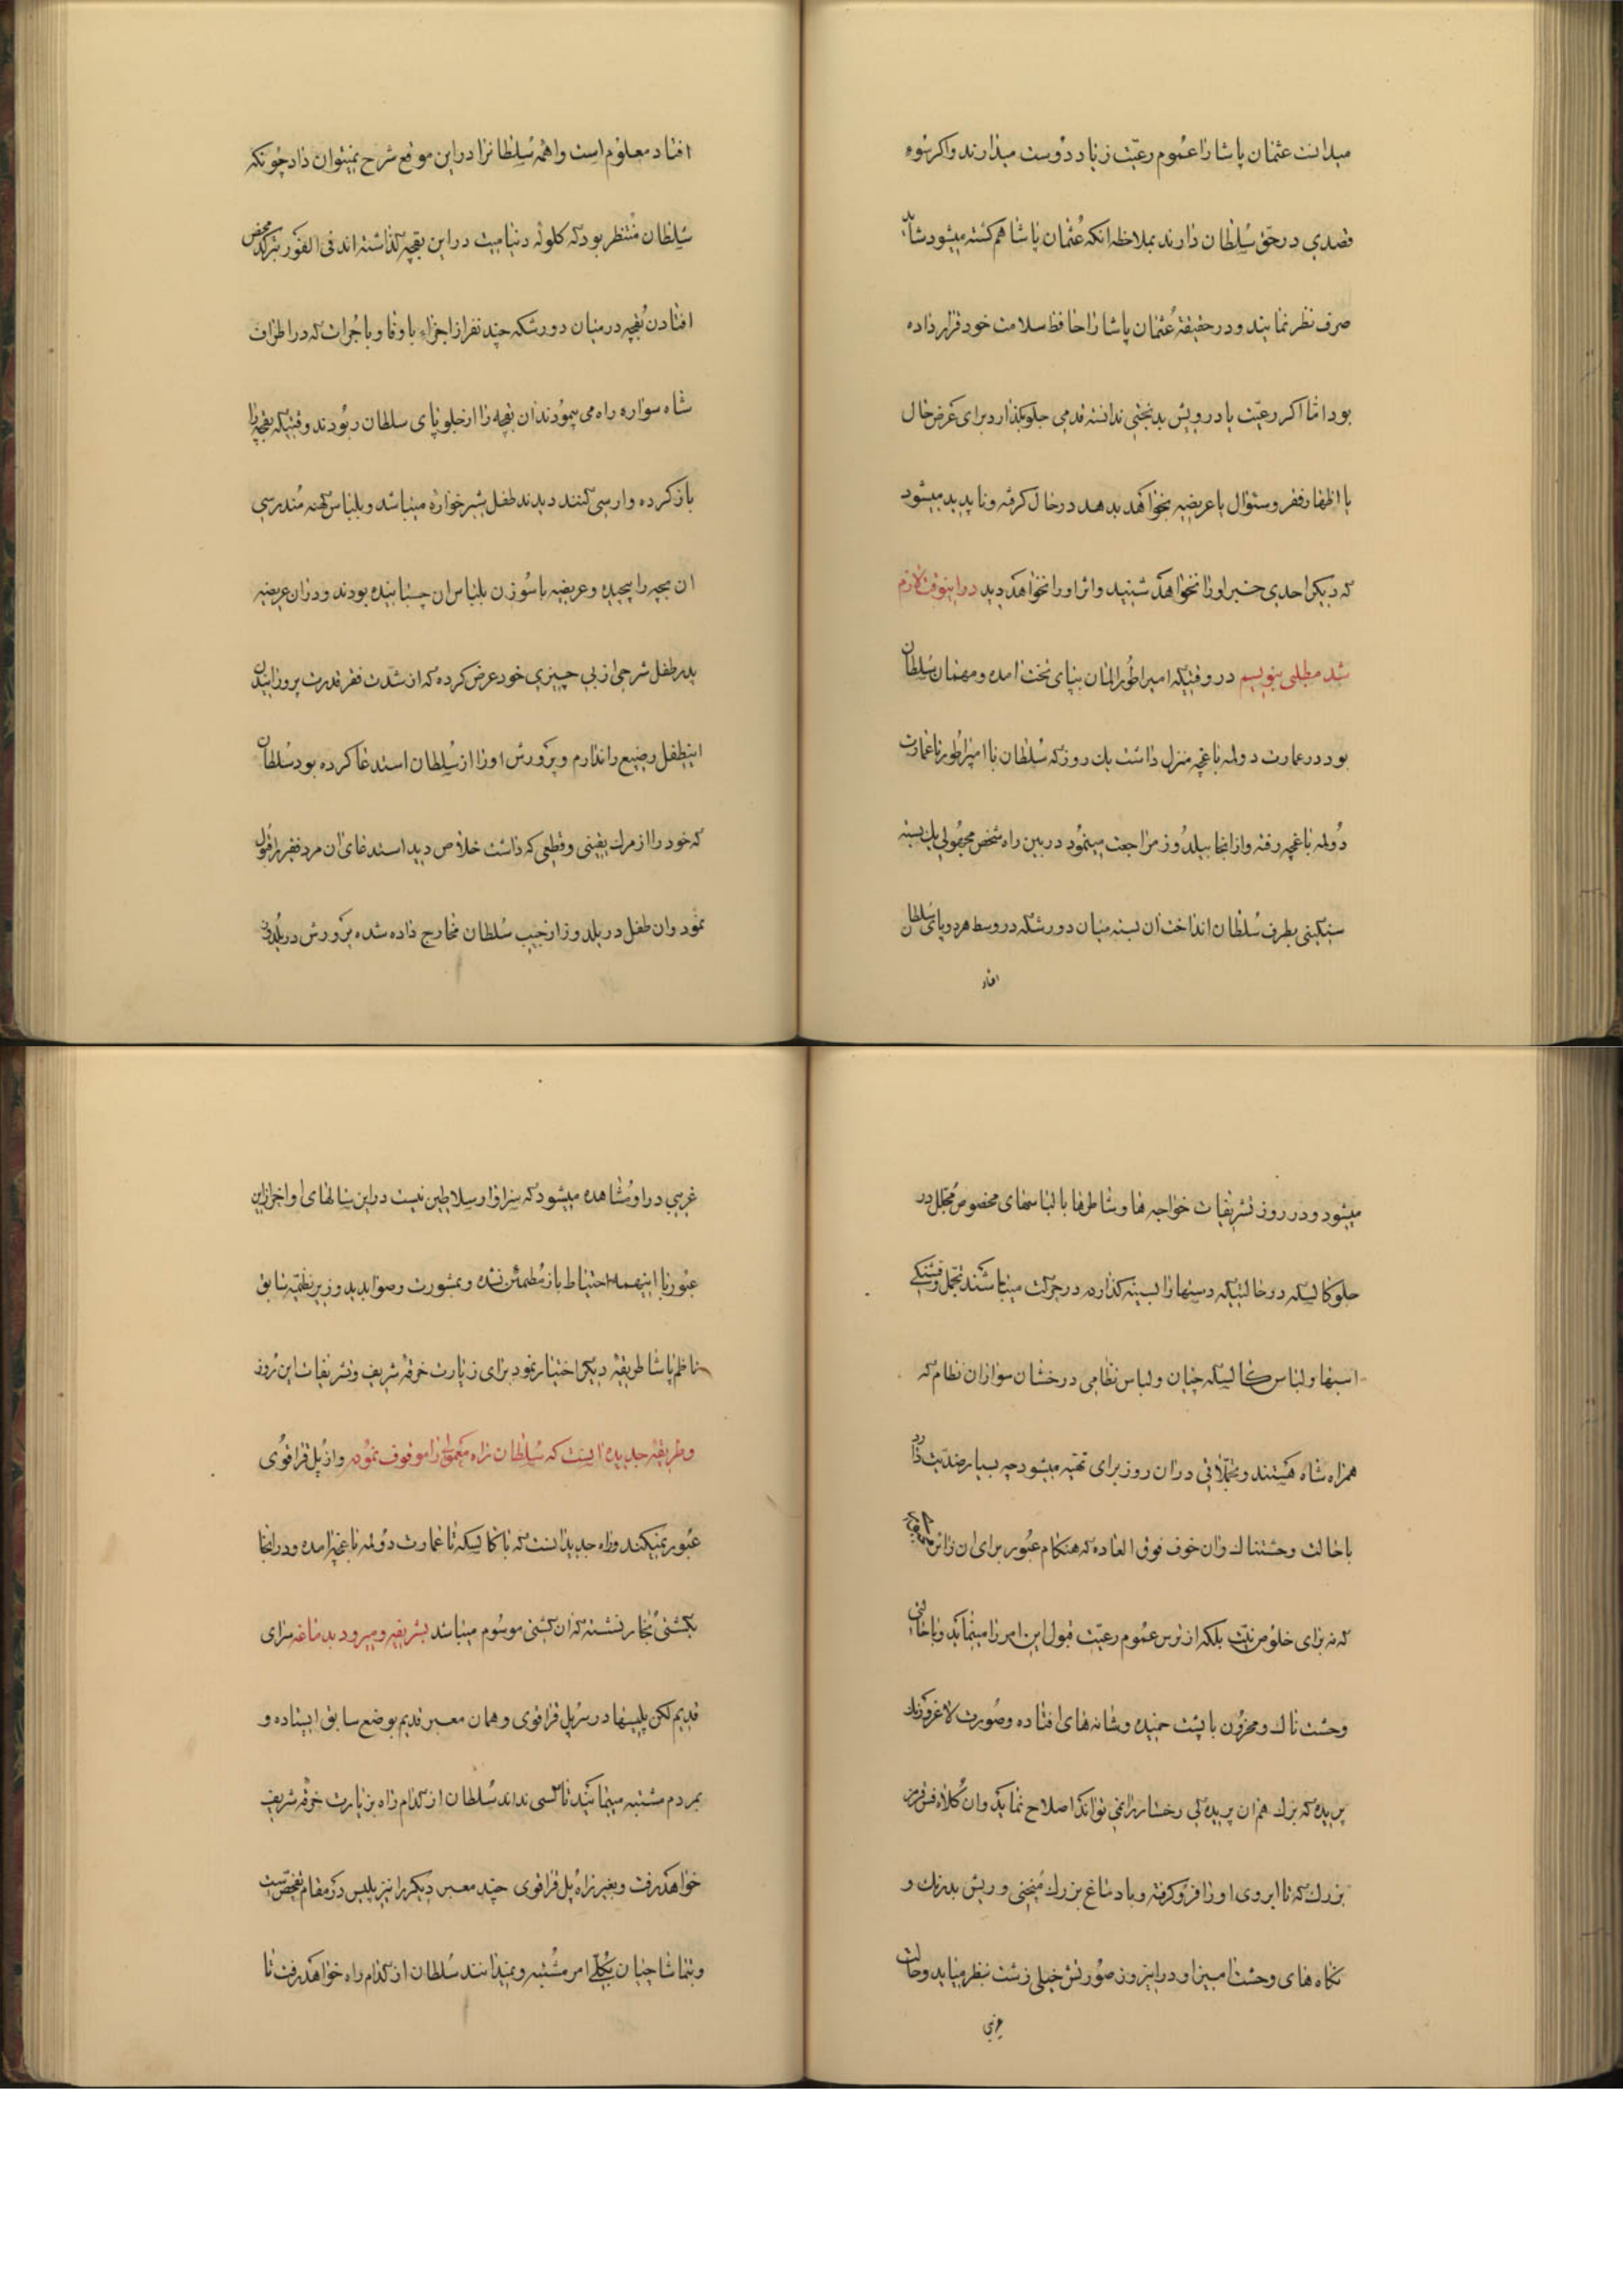 میدانست عثمان پاشا را عموم رعیّت زیاد دوست میدارند و اکر سُوء
قصدی در حق سُلطان دارند بملاحظه انکه عُثمان پاشا هم کشته میشود شاید
صرف نظر نمایند و در حقیقة عُثمان پاشا را حافظ سلامت خود قرار داده
بود امّا اکر رعیّت یا درویش بدبختی ندانسته قدمی جلو بکذارد برای عَرض حال
یا اظهار فقر و سئوال یا عریضه بخواهد بدهد در حال کرفته و ناپدید میشود
که دیکر احدی خبر او را نخواهد شنید و اثر او را نخواهد دید در اینوقت لازم
شد مطلبی بنویسم در وقتیکه امپراطور المان بپای تخت امده و مهمان سُلطان
بود در عمارت دولمه باغچه منزل داشت یک روز که سُلطان با امپراطور بعمارت
دُولمه باغچه رفته و از انجا بیلدُوز مراجعت مینمُود در بین راه شخص مجهُولی یک بسته
سنکینی بطرف سُلطان انداخت ان بسته میان دورشکه در وسط هر دو پای سُلطان
افتاد
افتاد معلوم است واهمه سُلطانرا در این موقع شرح نمیتوان داد چونکه
سُلطان مُنتظر بود که کلوله دینامیت در این بقچه کذاشته اند فی الفور بترکد محض
افتادن بُقچه در میان دورشکه چند نفر از اجزاء باوفا و باجُرات که در اطراف
شاه سواره راه می پیمودند ان بقچه را از جلو پای سلطان ربُودند وقتیکه بقچه را
باز کرده وارسی کنند دیدند طفل شیرخواره میباشد و بلباس کهنه مُندرسی
ان بچه را پیچیده و عریضه با سُوزن بلباس ان چسبانیده بودند و در ان عریضه
پدر طفل شرحی از بی چیزی خود عرض کرده که از شدّت فقر قدرت پرورانیدن
اینطفل رضیع را ندارم و پرورش او را از سُلطان استدعا کرده بود سُلطان
که خود را از مرک یقینی و قطعی که داشت خلاص دید استدعای ان مرد فقیر را قبول
نمود و ان طفل در یلدوز از جیب سُلطان مخارج داده شده پرورش در یلدوز
میشود و در روز تشریفات خواجه ها و شاطرها با لباسهای مخصوص مُجلّل در
جلو کالسکه در حالتیکه دستها را بسینه کذارده در حرکت میباشند تجمّل و قشنکی
اسبها و لباس کالسکه چیان و لباس نظامی درخشان سواران نظام که
همراه شاه هستند و تجمّلاتی در ان روز برای تهیه میشود چه بسیار ضدّیت دارد
با حالت وحشتناک و ان خوف فوق العاده که هنکام عبُور برای ان زائر
که نه برای خلوص نیّت بلکه از ترس عموم رعیّت قبول این امر را مینماید و با حالتی
وحشت ناک و محزون با پشت خمیده و شانه های افتاده وصُورت لاغر و رنک
پریده که بزک هم ان پریده کی رخسار را نمی تواند اصلاح نماید و ان کُلاه فس قرمز
بزرک که تا ابروی او را فرو کرفته و با دماغ بزرک مُنحنی و ریش بدرنک و
نکاه های وحشت امیز او در اینروز صُورتش خیلی زشت بنظر میاید و حالت
غریبی
غریبی در او مُشاهده میشود که سزاوار سلاطین نیست در این سالهای اواخر از این
عبُور با اینهمه احتیاط باز مُطمئن نشده و بمشورت و صوابدید وزیر نظمیّه سابق
ناظم پاشا طریقۀ دیکر اختیار نمود برای زیارت خرقه شریف و تشریفات این روز
و طریقۀ جدیده اینست که سُلطان راه معمولی را موقوف نموده و از پُل قراقوُی
عبُور نمیکند و راه جدید انست که با کالسکه تا عمارت دُولمه باغچه امده و در انجا
بکشتی بُخار نشسته که ان کشتی موسُوم میباشد بشریفیه و میرود بدماغه سرای
قدیم لکن پلیسها در سر پل قراقوی و همان معبر قدیم بوضع سابق ایستاده و
بمردم مشتبه مینمایند تا کسی نداند سُلطان از کدام راه بزیارت خرقه شریف
خواهد رفت و بغیر راه پل قراقوی چند معبر دیکر را نیز پلیس در مقام تفحّص است
و بتماشاچیان بکلّی امر مشتبه و نمیدانند سُلطان از کدام راه خواهد رفت تا